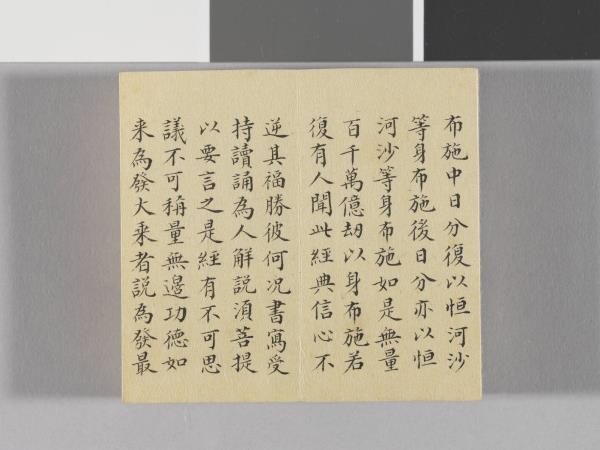 布施中日分復以恒河沙
等身布施後日分亦以恒
河沙等身布施如是無量
百千萬億劫以身布施若
復有人聞此經典信心不
逆其福勝彼何况書寫受
持讀誦為人解說湏菩提
以要言之是經有不可思
議不可稱量無邉功德如
来為發大乘者説為發最